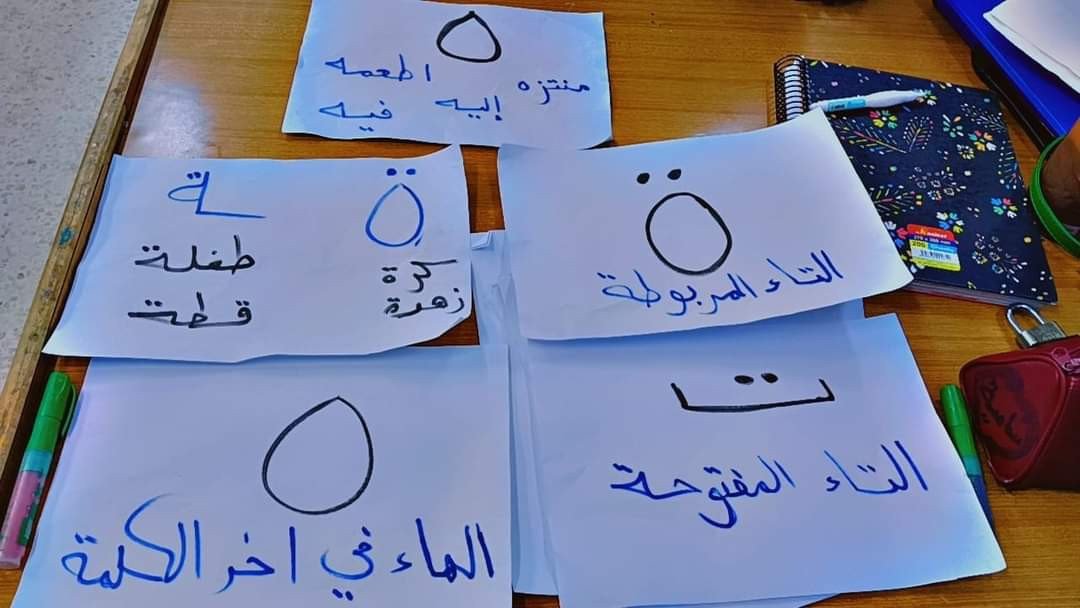 ه
منتزه اطعمه
إليه فيه
ة ـة
كرة طفلة
زهدة قطة
ة
التاء المربوطة
ه
الهاء في اخر الكلمة
ت
التاء المفتوحة